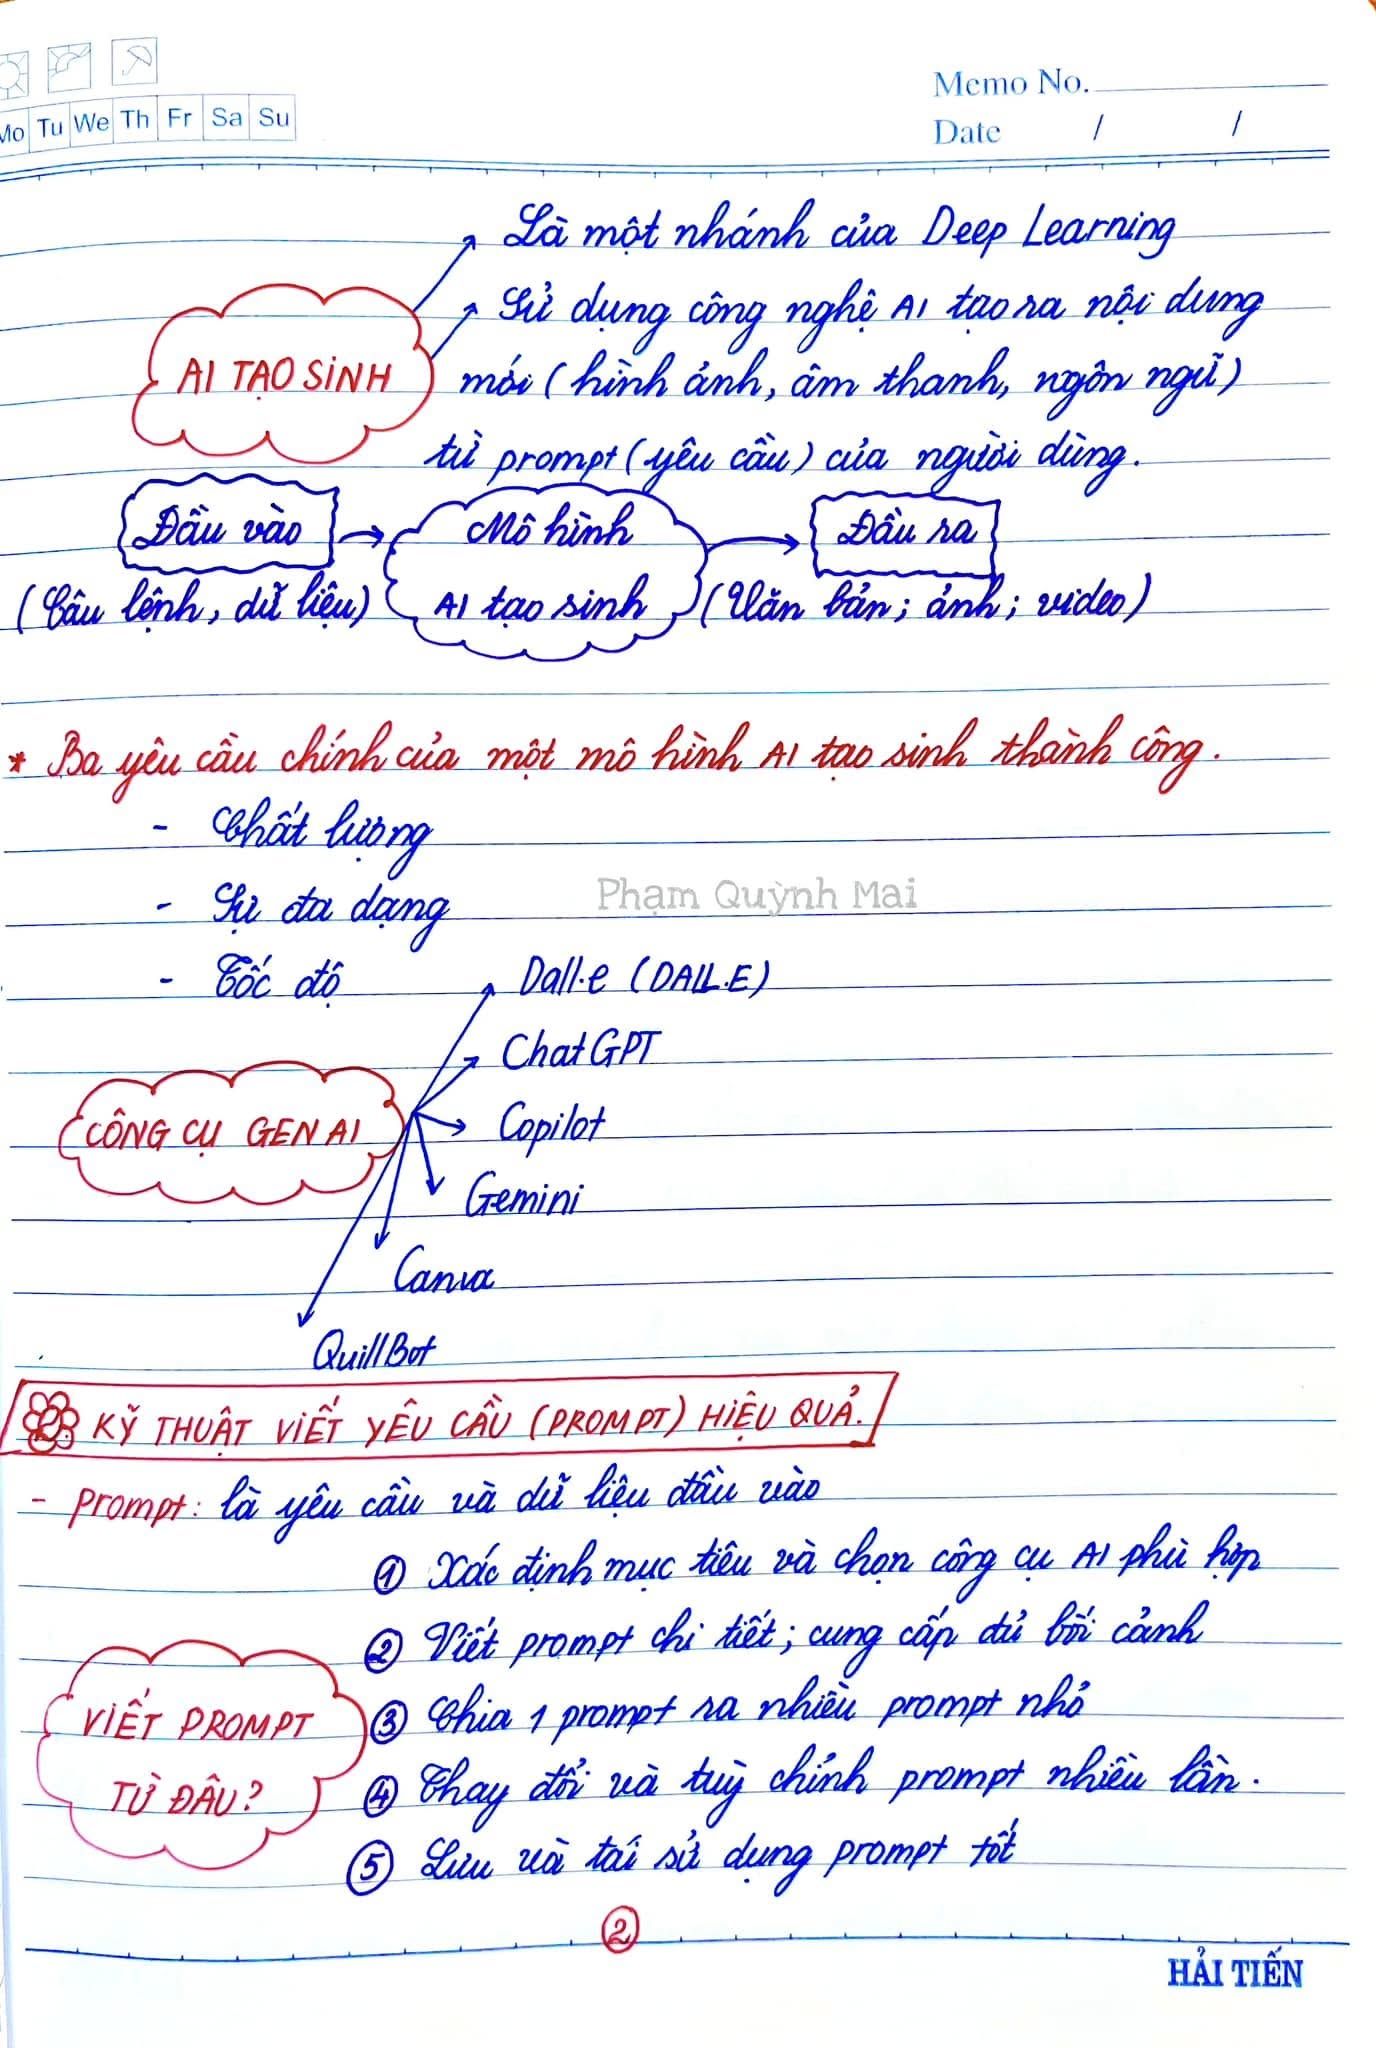 Memo No.
Mo Tu We Th Fr Sa Su
Date / /
Là một nhánh của Deep Learning
Sử dụng công nghệ AI tạo ra nội dung
AI TẠO SINH
mới (hình ảnh, âm thanh, ngôn ngữ)
từ prompt (yêu cầu) của người dùng.
Đầu vào Mô hình Đầu ra
(Câu lệnh, dữ liệu) AI tạo sinh (Văn bản; ảnh; video)
* Ba yêu cầu chính của một mô hình AI tạo sinh thành công.
- Chất lượng
- Sự đa dạng
Phạm Quỳnh Mai
- Tốc độ
Dall.e (DALL.E)
ChatGPT
CÔNG CỤ GEN AI
Copilot
Gemini
Canva
QuillBot
2. KỸ THUẬT VIẾT YÊU CẦU (PROMPT) HIỆU QUẢ.
- Prompt: là yêu cầu và dữ liệu đầu vào
① Xác định mục tiêu và chọn công cụ AI phù hợp
② Viết prompt chi tiết; cung cấp đủ bối cảnh
VIẾT PROMPT
③ Chia 1 prompt ra nhiều prompt nhỏ
TỪ ĐÂU?
④ Thay đổi và tuỳ chỉnh prompt nhiều lần.
⑤ Lưu và tái sử dụng prompt tốt
②
HẢI TIẾN